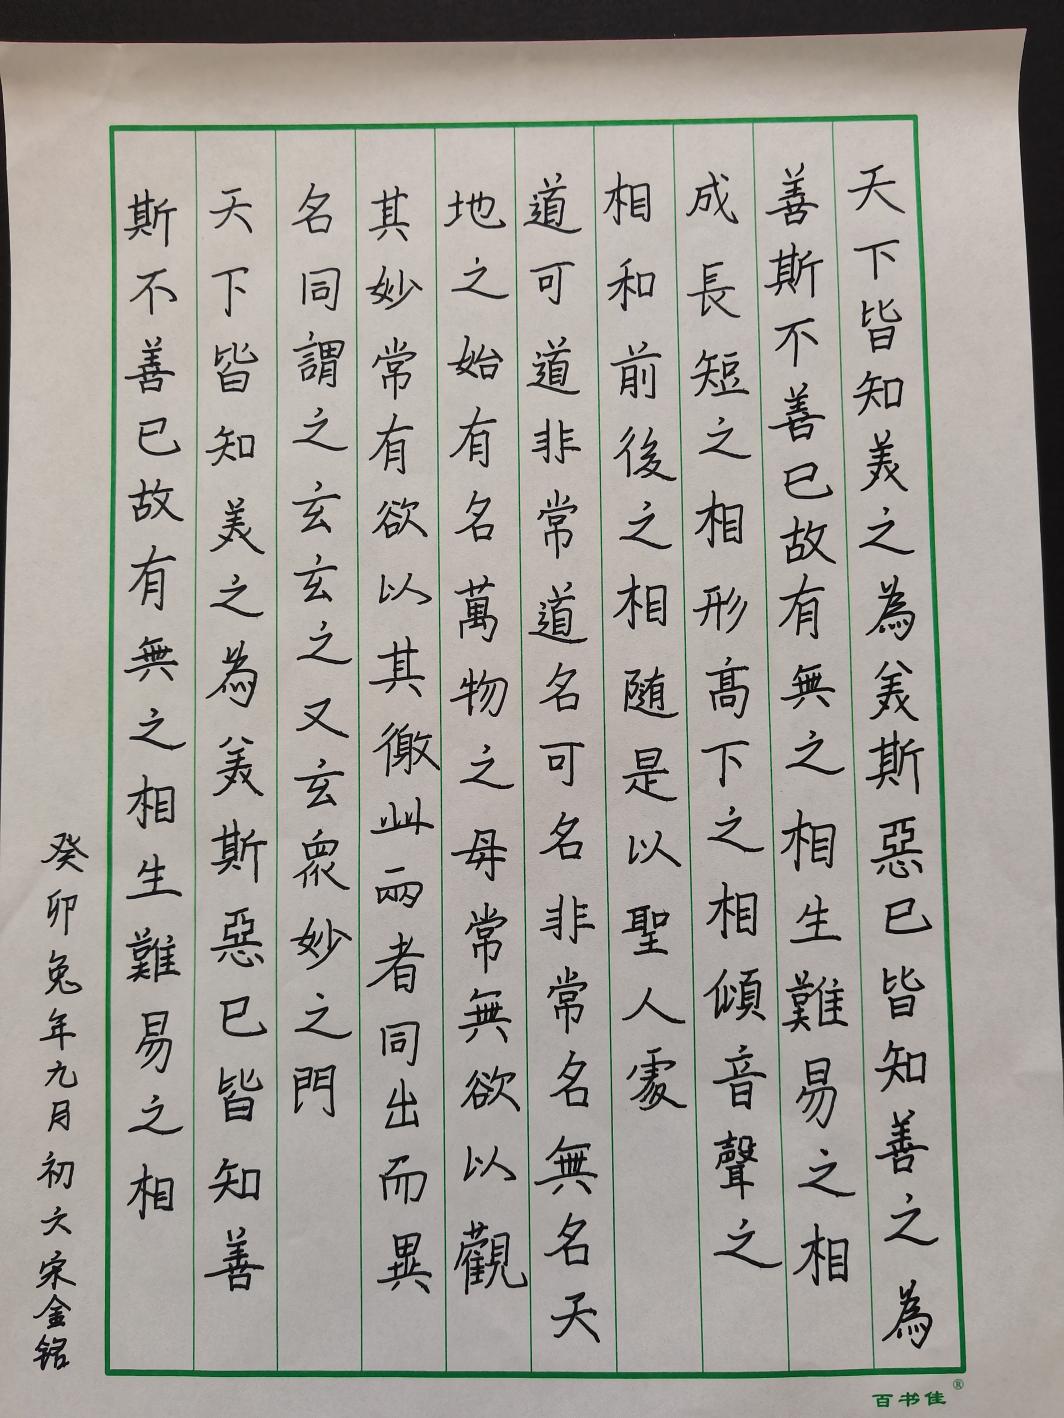 天下皆知美之為美斯惡已皆知善之為
善斯不善已故有無之相生難易之相
成長短之相形高下之相傾音聲之
相和前後之相随是以聖人處
道可道非常道名可名非常名無名天
地之始有名萬物之母常無欲以觀
其妙常有欲以其徼此兩者同出而異
名同謂之玄玄之又玄衆妙之門
天下皆知美之為美斯惡已皆知善
斯不善已故有無之相生難易之相
癸卯兔年九月初六宋金铭
百书佳®